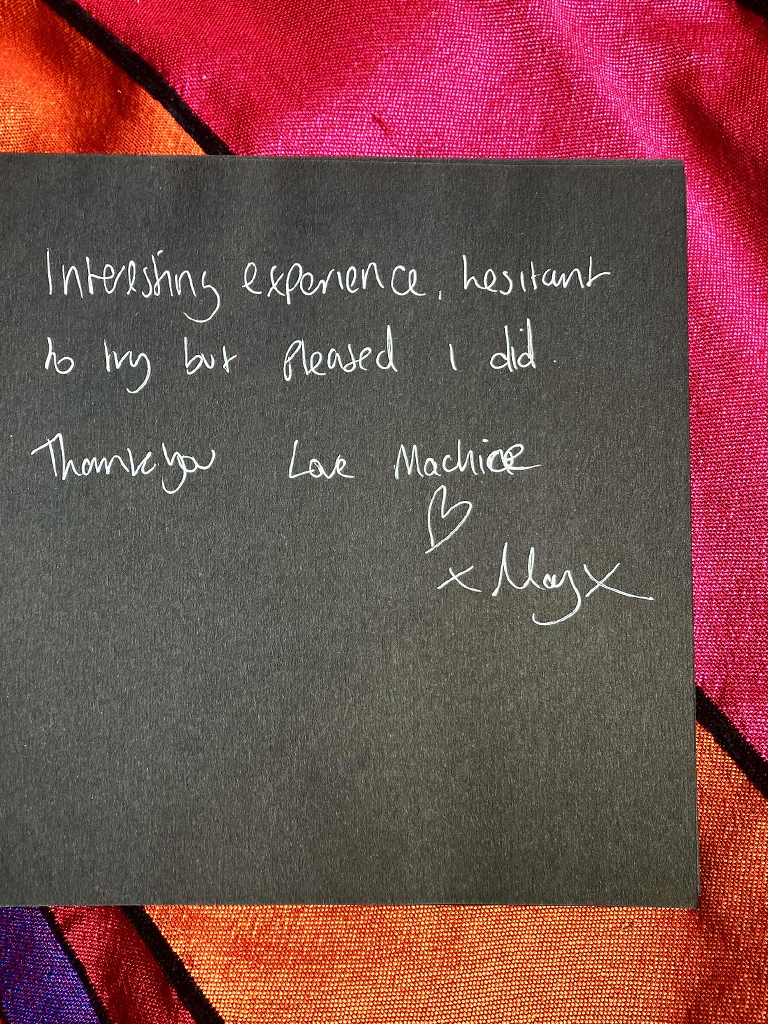 Interesting experience, hesitant
to try but pleased I did.
Thankyou Love Machine
♡
x May x